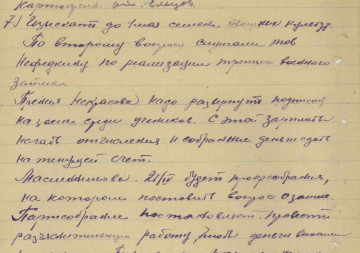 7) Изыскать до 1 мая семена культур.
По второму вопросу слушали тов
Нефедкину по реализации третьего военного
займа.
Прения Некрасова надо развернуть подписку
на заем среди учеников. С этой зарплаты
начать отчисления и собранные деньги сдать
на текущий счет.
21/IV будет профсобрание,
на котором поставить вопрос о займе.
Партсобрание постановляет: провести
разъяснительную работу, чтобы деньги вносили